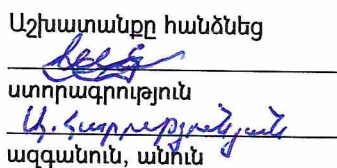 Աշխատանքը հանձնեց
ստորագրություն
Ա. Հարությունյան
ազգանուն, անուն